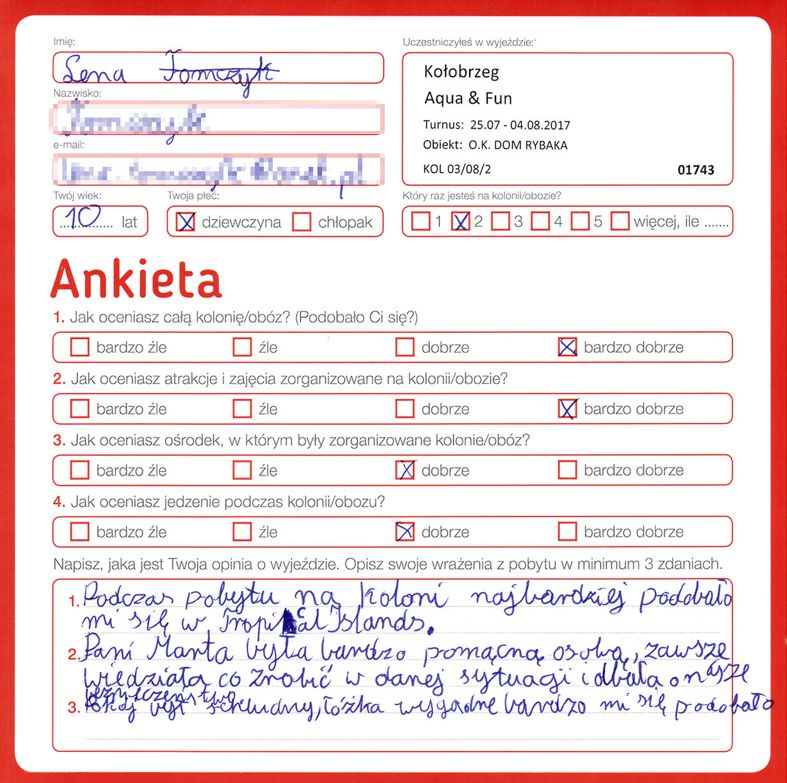 Imię:
Lena Tomczyk
Uczestniczyłeś w wyjeździe:
Kołobrzeg
Aqua & Fun
Turnus: 25.07 - 04.08.2017
Obiekt: O.K. DOM RYBAKA
KOL 03/08/2 01743
Nazwisko:
e-mail:
Twój wiek:
10 lat
Twoja płeć:
dziewczyna chłopak
Który raz jesteś na kolonii/obozie?
1 2 3 4 5 więcej, ile .......
Ankieta
1. Jak oceniasz całą kolonię/obóz? (Podobało Ci się?)
bardzo źle źle dobrze bardzo dobrze
2. Jak oceniasz atrakcje i zajęcia zorganizowane na kolonii/obozie?
bardzo źle źle dobrze bardzo dobrze
3. Jak oceniasz ośrodek, w którym były zorganizowane kolonie/obóz?
bardzo źle źle dobrze bardzo dobrze
4. Jak oceniasz jedzenie podczas kolonii/obozu?
bardzo źle źle dobrze bardzo dobrze
Napisz, jaka jest Twoja opinia o wyjeździe. Opisz swoje wrażenia z pobytu w minimum 3 zdaniach.
1. Podczas pobytu na koloni najbardziej podobało
mi się w Tropical Islands.
2. Pani Marta była bardzo pomocną osobą, zawsze
wiedziała co zrobić w danej sytuacji i dbała o nasze
bezpieczeństwo
3. Pokój był schludny, łóżka wygodne bardzo mi się podobało